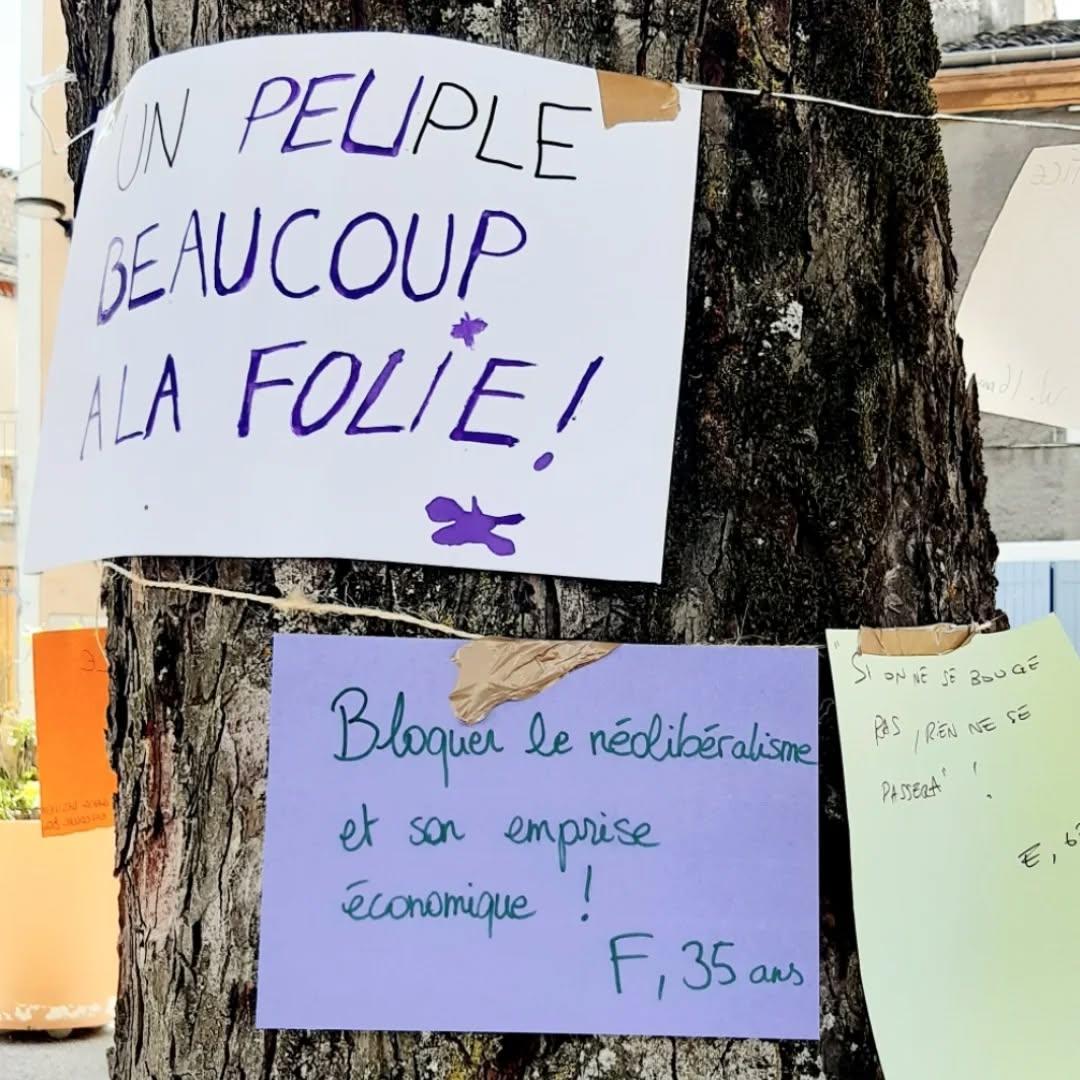 UN PEUPLE
BEAUCOUP
A LA FOLIE !
Bloquer le néolibéralisme
et son emprise
économique !
F, 35 ans
"SI ON NE SE BOUGE
PAS, RIEN NE SE
PASSERA" !
E, 6